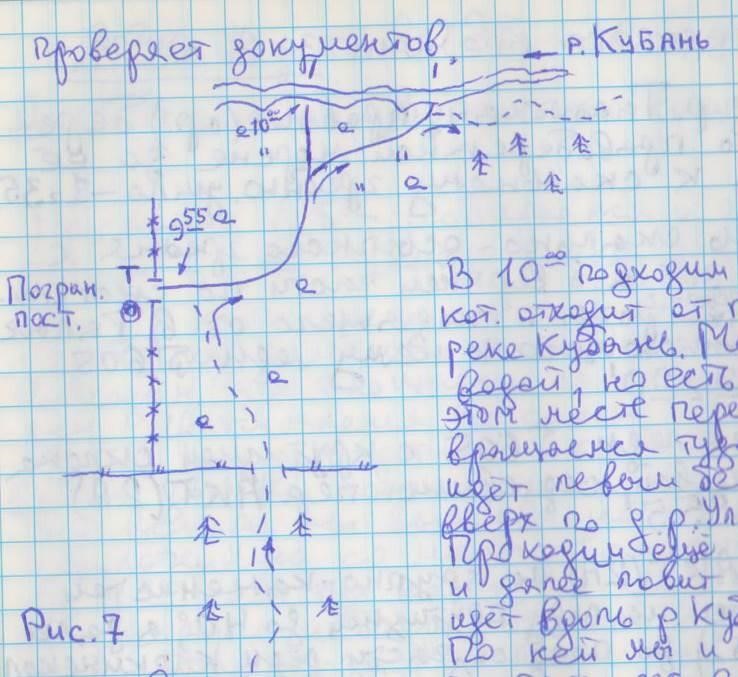 проверяет документов.
р. КУБАНЬ
10⁰⁰
9⁵⁵
Т
Погран.
пост.
В 10⁰⁰ подходим
кот. отходит от
реке Кубань.
водой, но есть
этом месте пере
вращаемся туд
идёт левым бе
вверх по д.р. Ул
Проходим ещё
и далее
идёт вдоль р Куб
По ней мы и
Рис. 7